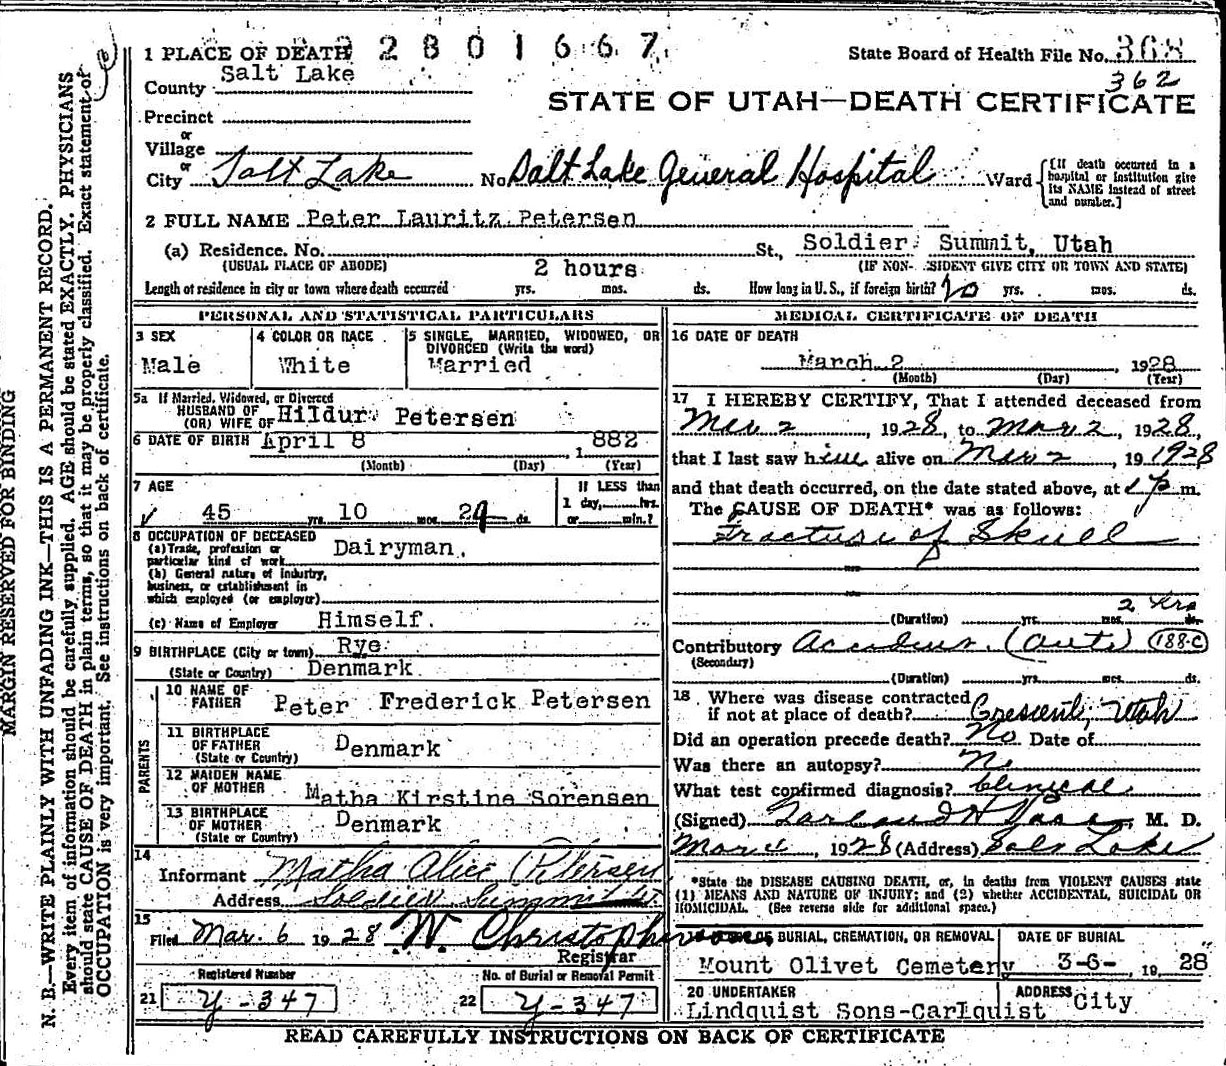 1 PLACE OF DEATH
2801667
State Board of Health File No. 368
County Salt Lake
362
STATE OF UTAH—DEATH CERTIFICATE
Precinct
or
Village
or
City Salt Lake No. Salt Lake General Hospital Ward
[If death occurred in a hospital or institution give its NAME instead of street and number.]
2 FULL NAME Peter Lauritz Petersen
(a) Residence. No. St., Soldier Summit, Utah
(USUAL PLACE OF ABODE) (IF NON- SIDENT GIVE CITY OR TOWN AND STATE)
2 hours
Length of residence in city or town where death occurred yrs. mos. ds. How long in U.S., if foreign birth? 20 yrs. mos. ds.
PERSONAL AND STATISTICAL PARTICULARS
3 SEX
Male
4 COLOR OR RACE
White
5 SINGLE, MARRIED, WIDOWED, OR DIVORCED (Write the word)
Married
5a If Married, Widowed, or Divorced
HUSBAND OF
(OR) WIFE OF Hildur Petersen
6 DATE OF BIRTH April 8, 1882
(Month) (Day) (Year)
7 AGE
45 yrs. 10 mos. 24 ds.
If LESS than
1 day, hrs.
or min.?
8 OCCUPATION OF DECEASED
(a) Trade, profession or particular kind of work Dairyman.
(b) General nature of industry, business, or establishment in which employed (or employer)
(c) Name of Employer Himself.
9 BIRTHPLACE (City or town) Rye
(State or Country) Denmark
PARENTS
10 NAME OF FATHER Peter Frederick Petersen
11 BIRTHPLACE OF FATHER Denmark
(State or Country)
12 MAIDEN NAME OF MOTHER Matha Kirstine Sorensen
13 BIRTHPLACE OF MOTHER Denmark
(State or Country)
14
Informant Matha Alice Petersen
Address Soldier Summit
15
Filed Mar. 6 1928 W. Christopherson
Registrar
Registered Number
21 Y-347
No. of Burial or Removal Permit
22 Y-347
MEDICAL CERTIFICATE OF DEATH
16 DATE OF DEATH
March 2, 1928
(Month) (Day) (Year)
17 I HEREBY CERTIFY, That I attended deceased from
Mar 2, 1928, to Mar 2, 1928,
that I last saw him alive on Mar 2, 19 1928
and that death occurred, on the date stated above, at 1 p m.
The CAUSE OF DEATH* was as follows:
Fracture of Skull
2 hrs
(Duration) yrs. mos. ds.
Contributory (Auto) 188-C
(Secondary)
(Duration) yrs. mos. ds.
18 Where was disease contracted
if not at place of death? Crescent, Utah
Did an operation precede death? No Date of
Was there an autopsy? No
What test confirmed diagnosis? Clinical
(Signed) M. D.
Mar 4, 1928 (Address) Salt Lake
*State the DISEASE CAUSING DEATH, or, in deaths from VIOLENT CAUSES state
(1) MEANS AND NATURE OF INJURY; and (2) whether ACCIDENTAL, SUICIDAL OR
HOMICIDAL. (See reverse side for additional space.)
OF BURIAL, CREMATION, OR REMOVAL
Mount Olivet Cemetery
DATE OF BURIAL
3-6-, 1928
20 UNDERTAKER
Lindquist Sons-Carlquist
ADDRESS City
READ CAREFULLY INSTRUCTIONS ON BACK OF CERTIFICATE
MARGIN RESERVED FOR BINDING
N. B.—WRITE PLAINLY WITH UNFADING INK—THIS IS A PERMANENT RECORD.
Every item of information should be carefully supplied. AGE should be stated EXACTLY. PHYSICIANS
should state CAUSE OF DEATH in plain terms, so that it may be properly classified. Exact statement of
OCCUPATION is very important. See instructions on back of certificate.